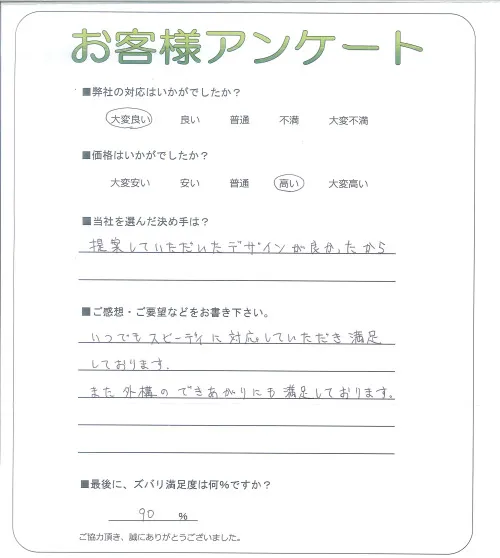 お客様アンケート
■弊社の対応はいかがでしたか？
大変良い 良い 普通 不満 大変不満
■価格はいかがでしたか？
大変安い 安い 普通 高い 大変高い
■当社を選んだ決め手は？
提案していただいたデザインが良かったから
■ご感想・ご要望などをお書き下さい。
いつでもスピーディに対応していただき満足
しております.
また外構のできあがりにも満足しております。
■最後に、ズバリ満足度は何％ですか？
90 ％
ご協力頂き、誠にありがとうございました。